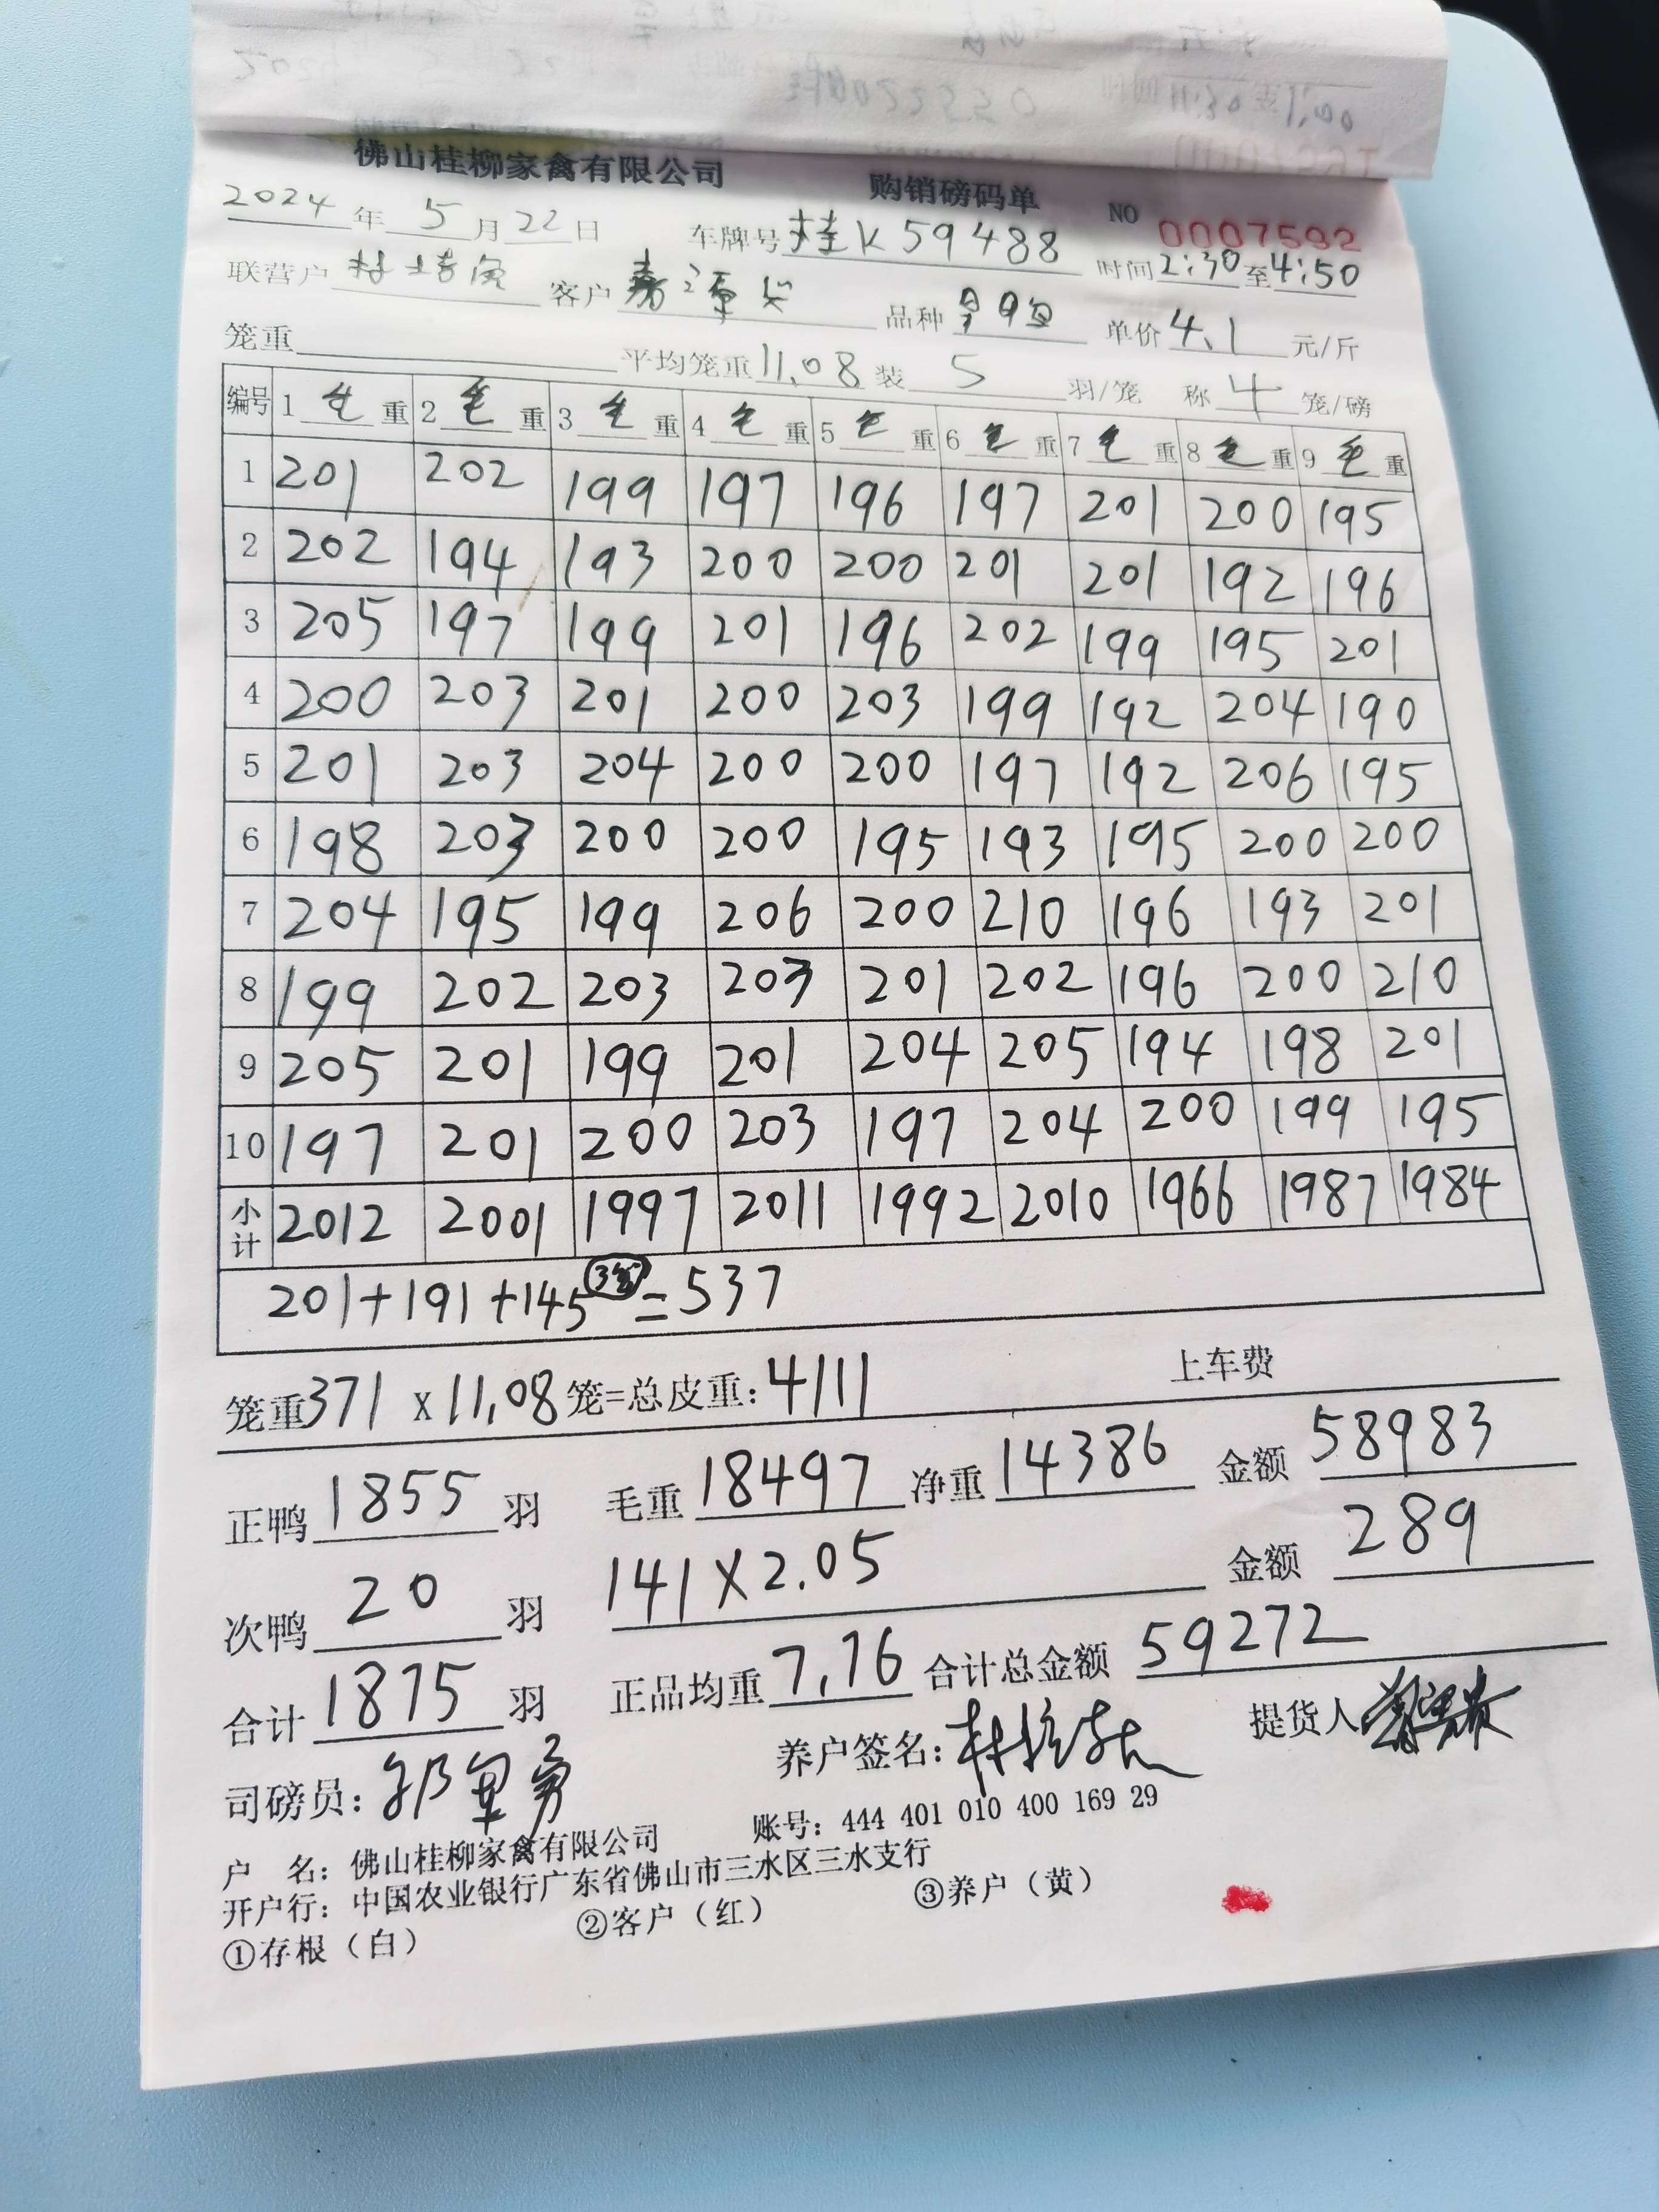 佛山桂柳家禽有限公司 购销磅码单 NO 0007592
2024年5月22日 车牌号桂K59488 时间2:30至4:50
联营户 客户 品种 单价4.1元/斤
笼重 平均笼重11.08装5羽/笼 称4笼/磅
编号 1毛重 2毛重 3毛重 4毛重 5毛重 6毛重 7毛重 8毛重 9毛重
1 201 202 199 197 196 197 201 200 195
2 202 194 193 200 200 201 201 192 196
3 205 197 199 201 196 202 199 195 201
4 200 203 201 200 203 199 192 204 190
5 201 203 204 200 200 197 192 206 195
6 198 203 200 200 195 193 195 200 200
7 204 195 199 206 200 210 196 193 201
8 199 202 203 203 201 202 196 200 210
9 205 201 199 201 204 205 194 198 201
10 197 201 200 203 197 204 200 199 195
小计 2012 2001 1997 2011 1992 2010 1966 1987 1984
201+191+145 3笼 =537
笼重371x11.08笼=总皮重:4111 上车费
正鸭1855羽 毛重18497净重14386 金额58983
次鸭20羽 141X2.05 金额289
合计1875羽 正品均重7.76合计总金额59272
司磅员: 养户签名: 提货人
户 名:佛山桂柳家禽有限公司 账号:444 401 010 400 169 29
开户行:中国农业银行广东省佛山市三水区三水支行
①存根(白) ②客户(红) ③养户(黄)